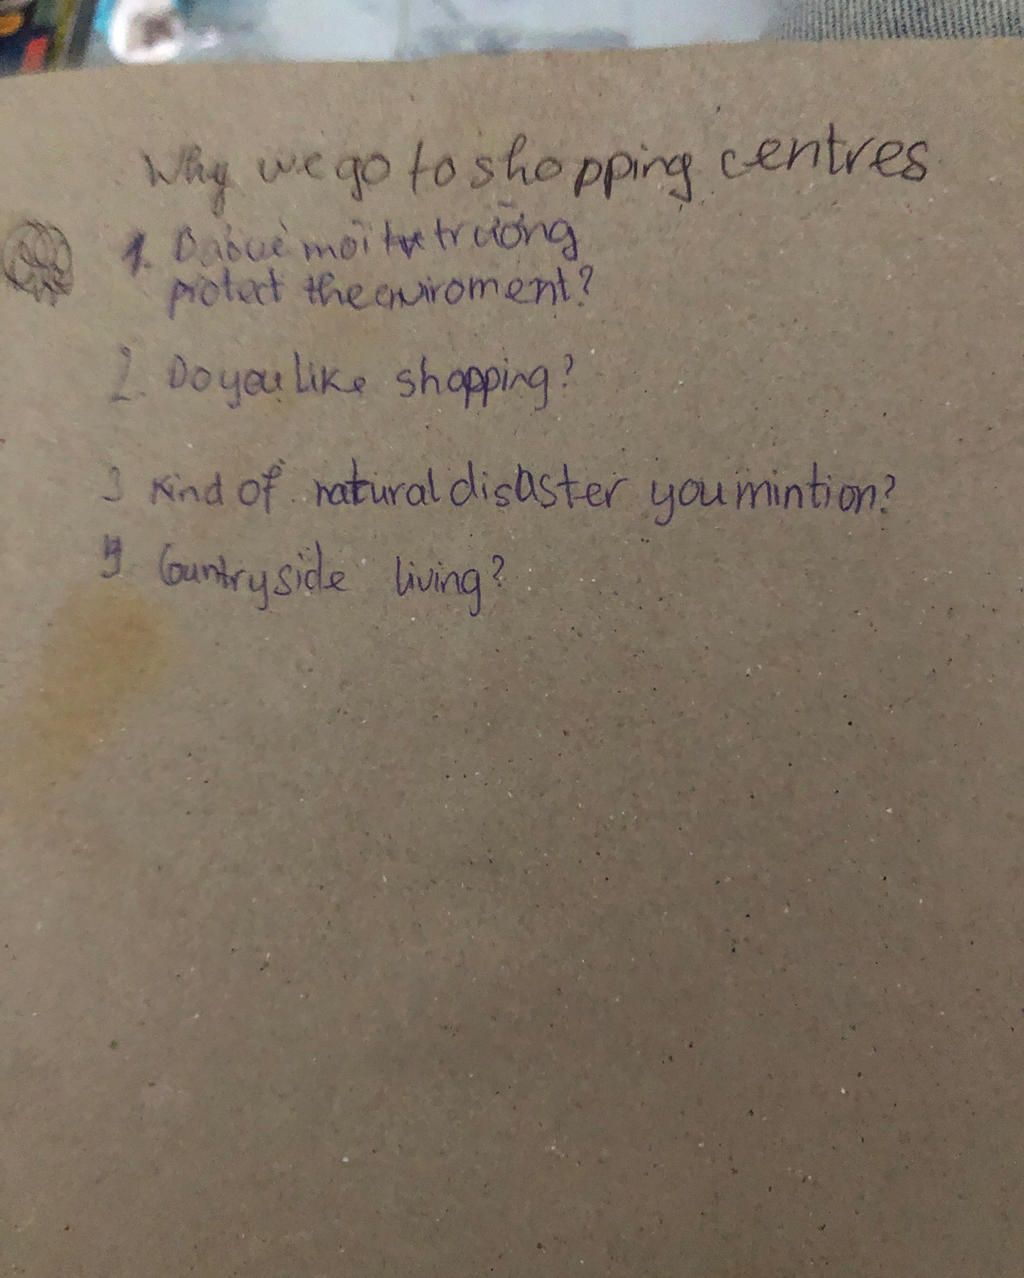 Why we go to shopping centres
1. Bảo vệ môi trường
protect the enviroment?
2. Do you like shopping?
3 Kind of natural disaster you mintion?
4. Countryside living?